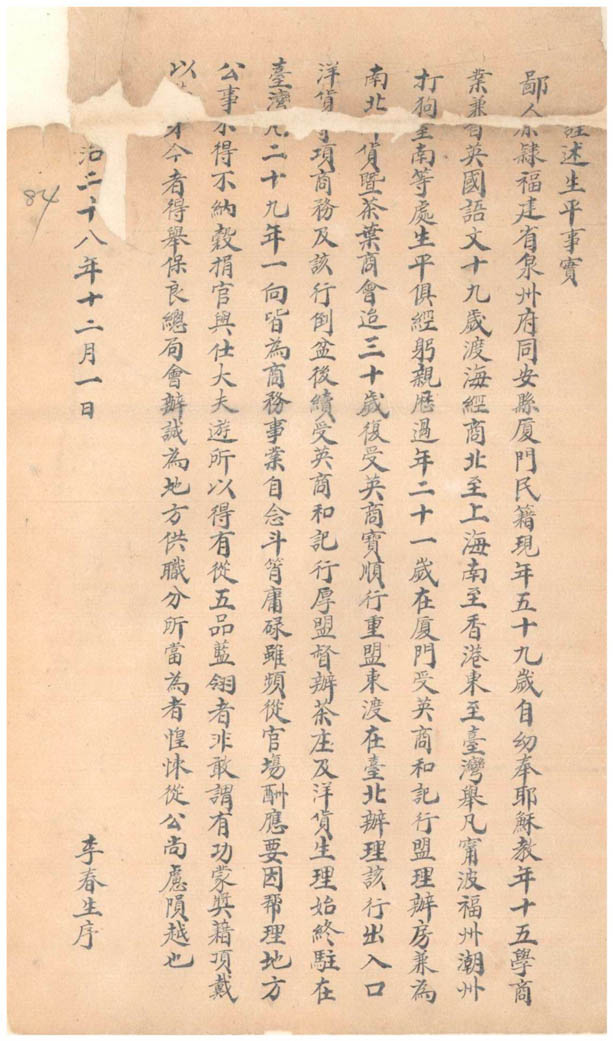 註述生平事實
鄙人系隸福建省泉州府同安縣厦門民籍現年五十九歲自幼奉耶穌教年十五學商
業兼習英國語文十九歲渡海經商北至上海南至香港東至臺灣舉凡甯波福州潮州
打狗臺南等處生平俱經躬親歷過年二十一歲在厦門受英商和記行盟理辦房兼為
南北 貨暨茶葉商會迨三十歲復受英商寶順行重盟東渡在臺北辦理該行出入口
洋貨 項商務及該行倒盆後續受英商和記行厚盟督辦茶庄及洋貨生理始終駐在
臺灣凡二十九年一向皆為商務事業自念斗筲庸碌雖頻從官場酬應要因帮理地方
公事不得不納穀捐官與仕大夫遊所以得有從五品藍翎者非敢謂有功蒙奬藉項戴
以 今者得舉保良總局會辦誠為地方供職分所當為者惶悚從公尚慮隕越也
治二十八年十二月一日
李春生序
84